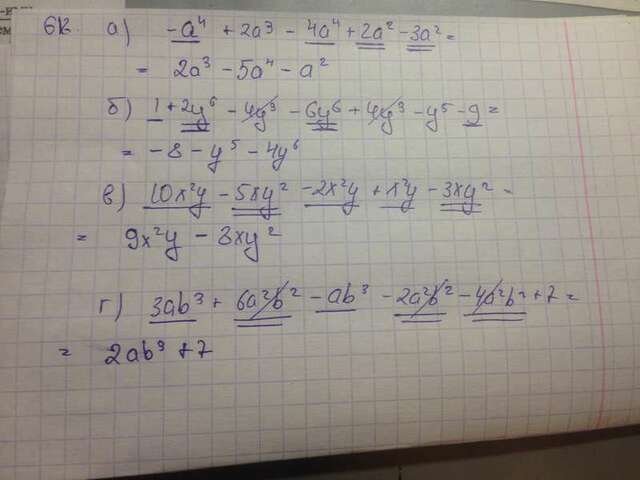 612. а) -a⁴ + 2a³ - 4a⁴ + 2a² - 3a² =
= 2a³ - 5a⁴ - a²
б) 1 + 2y⁶ - 4y³ - 6y⁶ + 4y³ - y⁵ - 9 =
= -8 - y⁵ - 4y⁶
в) 10x²y - 5xy² - 2x²y + x²y - 3xy² =
= 9x²y - 8xy²
г) 3ab³ + 6a²b² - ab³ - 2a²b² - 4a²b² + 7 =
= 2ab³ + 7